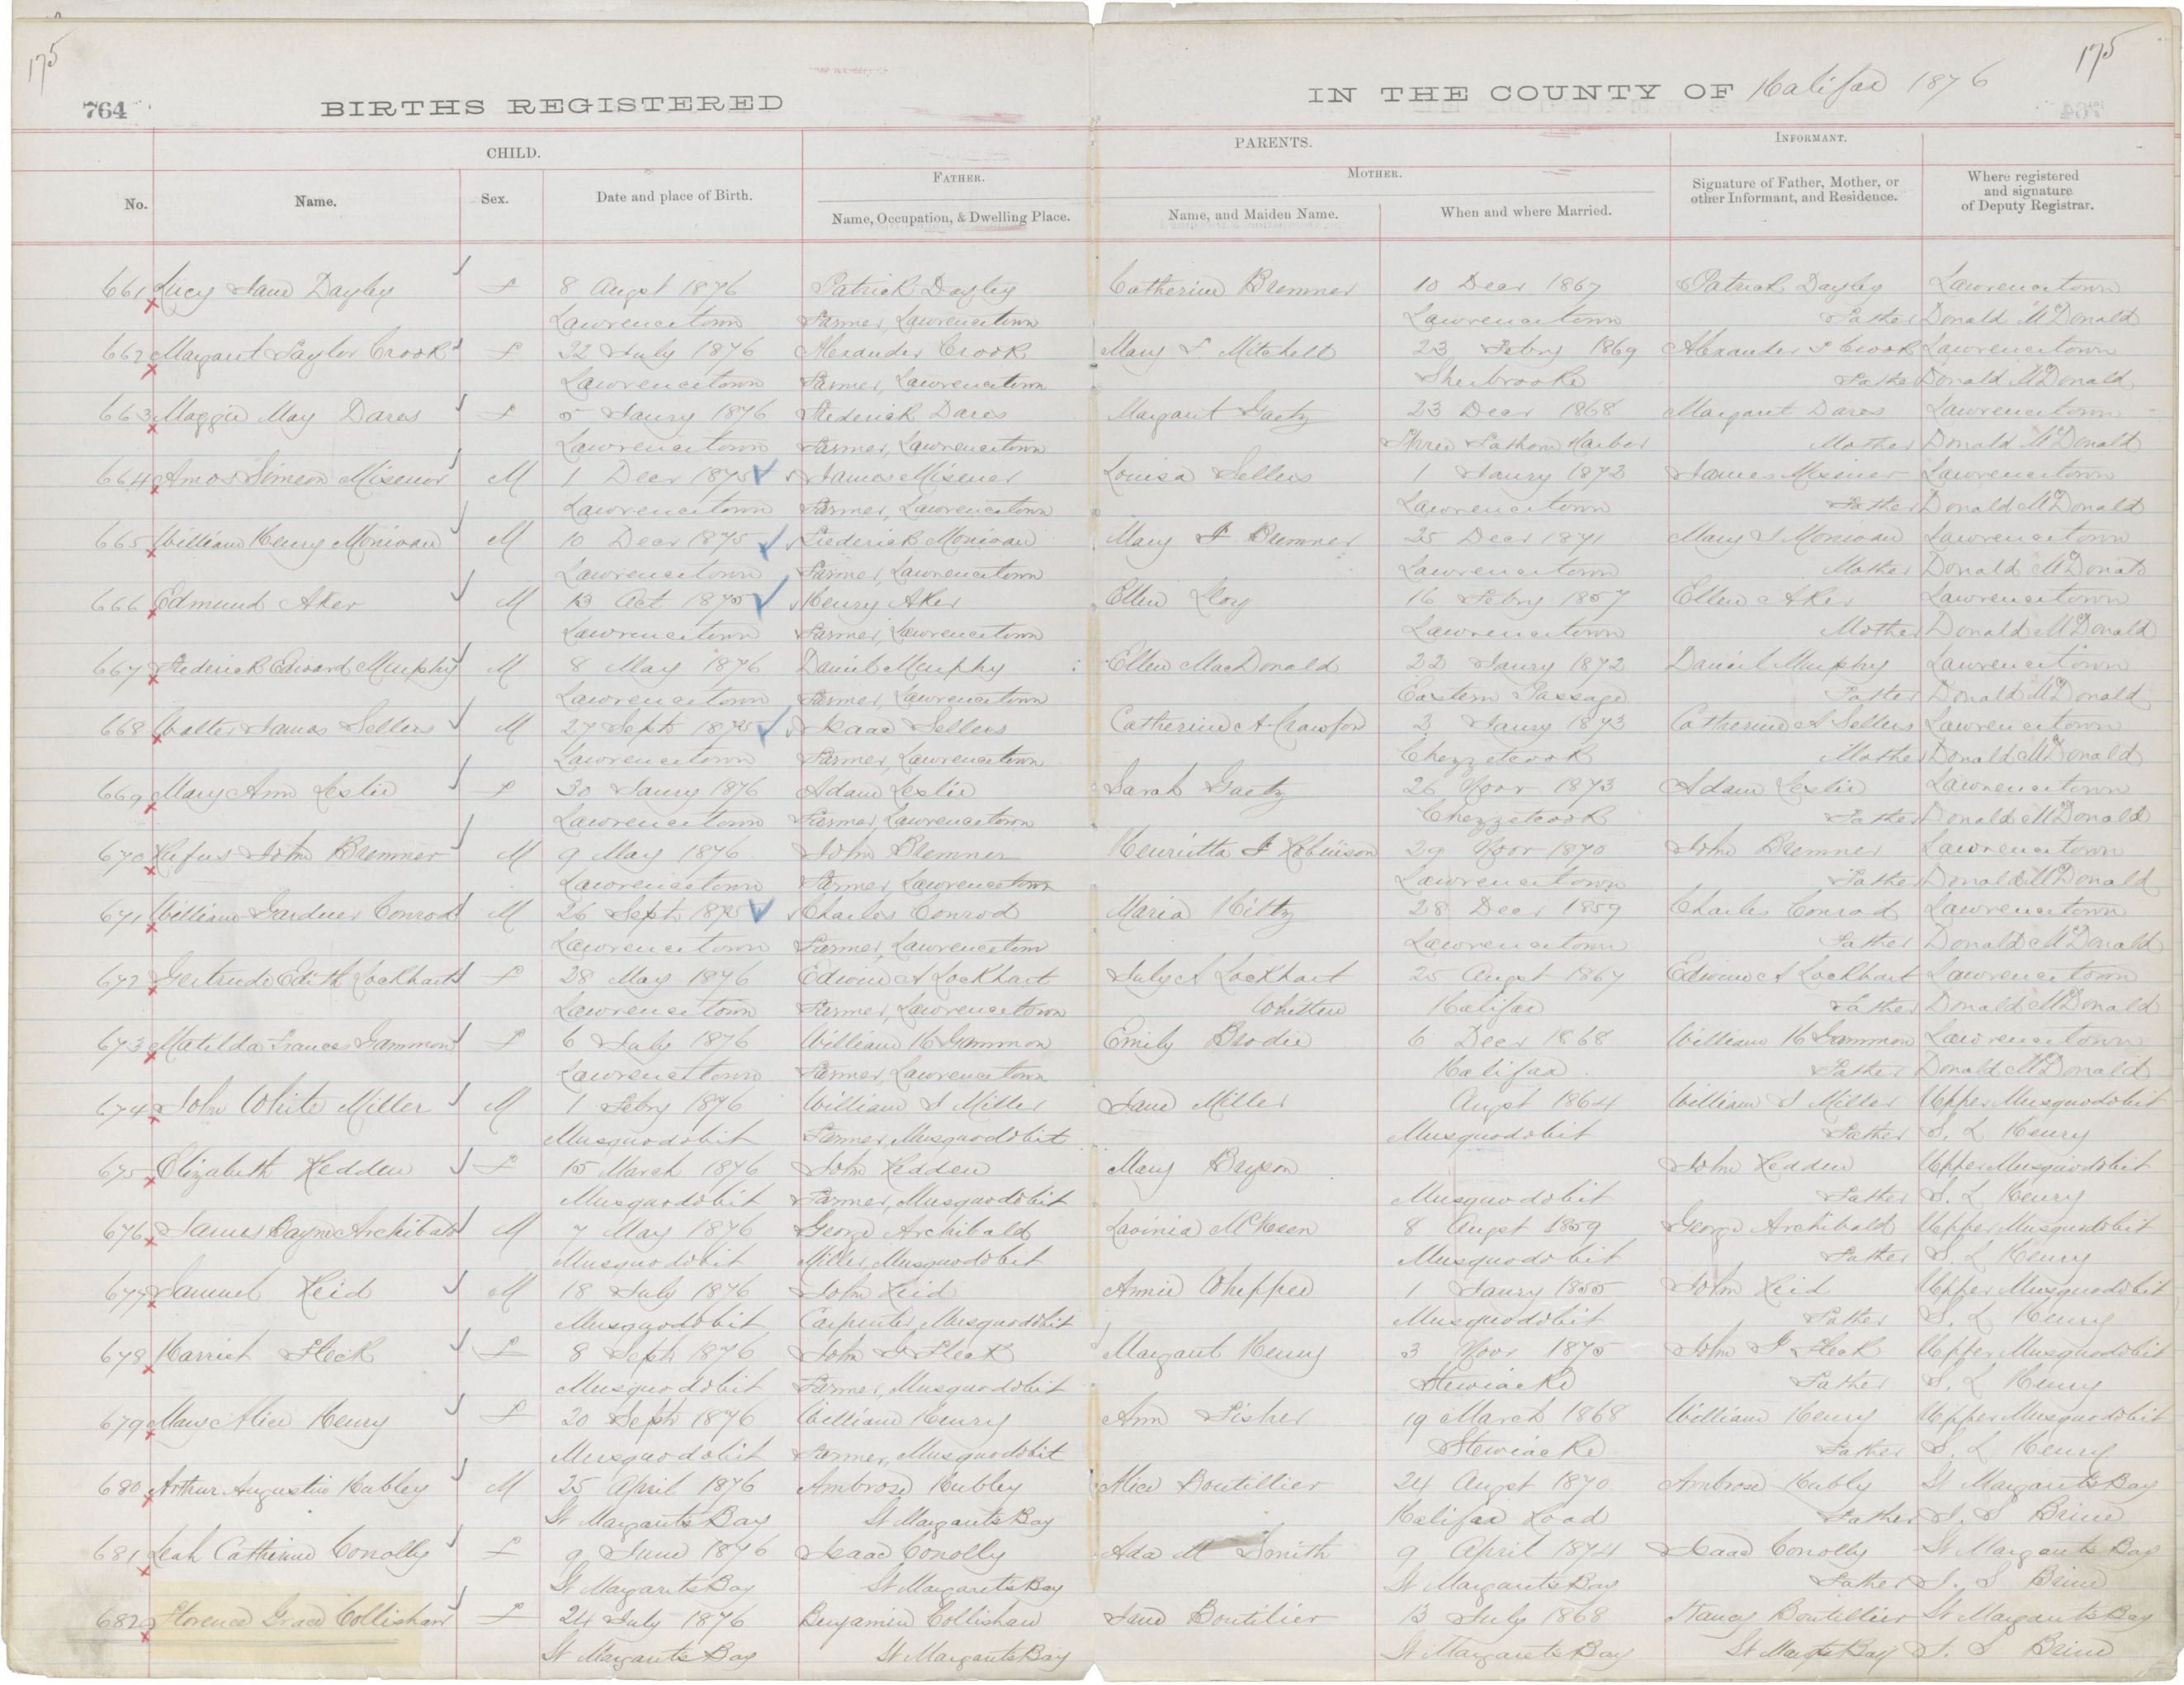 175 175
764 BIRTHS REGISTERED IN THE COUNTY OF Halifax 1876
CHILD. PARENTS. INFORMANT.
FATHER. MOTHER.
No. Name. Sex. Date and place of Birth. Name, Occupation, & Dwelling Place. Name, and Maiden Name. When and where Married. Signature of Father, Mother, or other Informant, and Residence. Where registered and signature of Deputy Registrar.
661 Lucy Jane Dayley f 8 Augst 1876 Patrick Dayley Catherine Bremner 10 Decr 1867 Patrick Dayley Lawrencetown
Lawrencetown Farmer, Lawrencetown Lawrencetown Father Donald McDonald
662 Margaret Taylor Crook f 22 July 1876 Alexander Crook Mary F Mitchell 23 Febry 1869 Alexander Crook Lawrencetown
Lawrencetown Farmer, Lawrencetown Sherbrooke Father Donald McDonald
663 Maggie May Dares f 5 Janry 1876 Frederick Dares Margaret Gaetz 23 Decr 1868 Margaret Dares Lawrencetown
Lawrencetown Farmer, Lawrencetown Three Fathom Harbor Mother Donald McDonald
664 Amos Simeon Misener M 1 Decr 1875 James Misener Louisa Sellers 1 Janry 1873 James Misener Lawrencetown
Lawrencetown Farmer, Lawrencetown Lawrencetown Father Donald McDonald
665 William Henry Monivan M 10 Decr 1875 Frederick Monivan Mary J Bremner 25 Decr 1871 Mary J Monivan Lawrencetown
Lawrencetown Farmer, Lawrencetown Lawrencetown Mother Donald McDonald
666 Edmund Aker M 13 Oct 1875 Henry Aker Ellen Loy 16 Febry 1857 Ellen Aker Lawrencetown
Lawrencetown Farmer, Lawrencetown Lawrencetown Mother Donald McDonald
667 Frederick Edward Murphy M 8 May 1876 Daniel Murphy Ellen MacDonald 22 Janry 1872 Daniel Murphy Lawrencetown
Lawrencetown Farmer, Lawrencetown Eastern Passage Father Donald McDonald
668 Walter James Sellers M 27 Septr 1875 Isaac Sellers Catherine A Crawfor 2 Janry 1873 Catherine A Sellers Lawrencetown
Lawrencetown Farmer, Lawrencetown Chezzetcook Mother Donald McDonald
669 Mary Ann Leslie f 30 Janry 1876 Adam Leslie Sarah Gaetz 26 Novr 1873 Adam Leslie Lawrencetown
Lawrencetown Farmer, Lawrencetown Chezzetcook Father Donald McDonald
670 Rufus John Bremner M 9 May 1876 John Bremner Henrietta J Robinson 29 Novr 1870 John Bremner Lawrencetown
Lawrencetown Farmer, Lawrencetown Lawrencetown Father Donald McDonald
671 William Gardner Conrod M 26 Septr 1875 Charles Conrod Maria Hiltz 28 Decr 1859 Charles Conrod Lawrencetown
Lawrencetown Farmer, Lawrencetown Lawrencetown Father Donald McDonald
672 Gertrude Edith Lockhart f 28 May 1876 Edwin A Lockhart July A Lockhart 25 Augst 1867 Edwin A Lockhart Lawrencetown
Lawrencetown Farmer, Lawrencetown Whitten Halifax Father Donald McDonald
673 Matilda Frances Gammon f 6 July 1876 William H Gammon Emily Brodie 6 Decr 1868 William H Gammon Lawrencetown
Lawrencetown Farmer, Lawrencetown Halifax Father Donald McDonald
674 John White Miller M 1 Febry 1876 William S Miller Jane Miller Augst 1864 William S Miller Upper Musquodobit
Musquodobit Farmer, Musquodobit Musquodobit Father S. L Henry
675 Elizabeth Redden f 15 March 1876 John Redden Mary Bryson John Redden Upper Musquodobit
Musquodobit Farmer, Musquodobit Musquodobit Father S. L Henry
676 James Bayne Archibald M 7 May 1876 George Archibald Lavinia McKeen 8 Augst 1859 George Archibald Upper Musquodobit
Musquodobit Miller, Musquodobit Musquodobit Father S. L Henry
677 Samuel Reid M 18 July 1876 John Reid Annie Whippee 1 Janry 1855 John Reid Upper Musquodobit
Musquodobit Carpenter, Musquodobit Musquodobit Father S. L Henry
678 Harriet Fleck f 8 Septr 1876 John J Fleck Margaret Henry 3 Novr 1875 John J Fleck Upper Musquodobit
Musquodobit Farmer, Musquodobit Stewiacke Father S. L Henry
679 Mary Alice Henry f 20 Septr 1876 William Henry Ann Fisher 19 March 1868 William Henry Upper Musquodobit
Musquodobit Farmer, Musquodobit Stewiacke Father S. L Henry
680 Arthur Augustin Hubley M 25 April 1876 Ambrose Hubley Alice Boutillier 24 Augst 1870 Ambrose Hubly St Margarets Bay
St Margarets Bay St Margarets Bay Halifax Road Father J. S Brine
681 Leah Catherine Conolly f 9 June 1876 Isaac Conolly Ada M Smith 9 April 1874 Isaac Conolly St Margarets Bay
St Margarets Bay St Margarets Bay St Margarets Bay Father J. S Brine
682 Florence Grace Collishaw f 24 July 1876 Benjamin Collishaw Jane Boutilier 13 July 1868 Nancy Boutillier St Margarets Bay
St Margarets Bay St Margarets Bay St Margarets Bay St Margts Bay J. S Brine